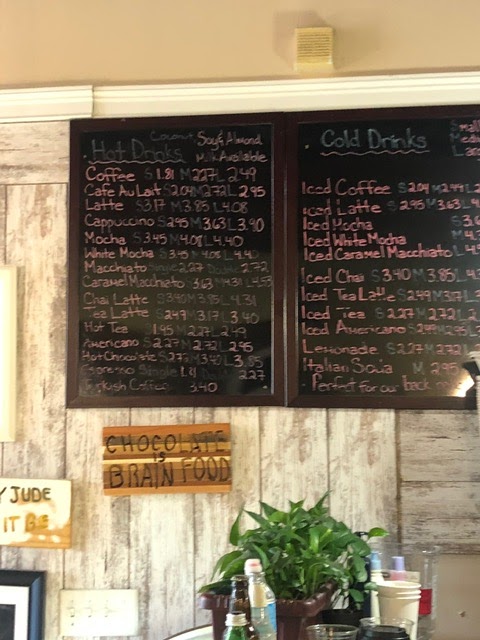 Coconut, Soy & Almond
Hot Drinks Milk Available
Coffee S 1.81 M 2.27 L 2.49
Cafe Au Lait S 2.04 M 2.72 L 2.95
Latte S 3.17 M 3.85 L 4.08
Cappuccino S 2.95 M 3.63 L 3.90
Mocha S 3.45 M 4.08 L 4.40
White Mocha S 3.45 M 4.08 L 4.40
Macchiato Single 2.27 Double 2.72
Caramel Macchiato 3.63 M 4.31 L 4.53
Chai Latte S 3.40 M 3.85 L 4.31
Tea Latte S 2.49 M 3.17 L 3.40
Hot Tea 1.95 M 2.27 L 2.49
Americano S 2.27 M 2.72 L 2.95
Hot Chocolate S 2.72 M 3.40 L 3.85
Espresso Single 1.81 2.27
Turkish Coffee 3.40
Cold Drinks
Iced Coffee S 2.04 M 2.49 L
Iced Latte S 2.95 M 3.63 L
Iced Mocha S
Iced White Mocha M
Iced Caramel Macchiato L
Iced Chai S 3.40 M 3.85 L
Iced Tea Latte S 2.49 M 3.17 L
Iced Tea S 2.27 M 2.72 L
Iced Americano S 2.49 M 2.95
Lemonade S 2.27 M 2.72
Italian Soda M 2.95
Perfect for our back
CHOCOLATE
IS
BRAIN FOOD
Y JUDE
IT BE